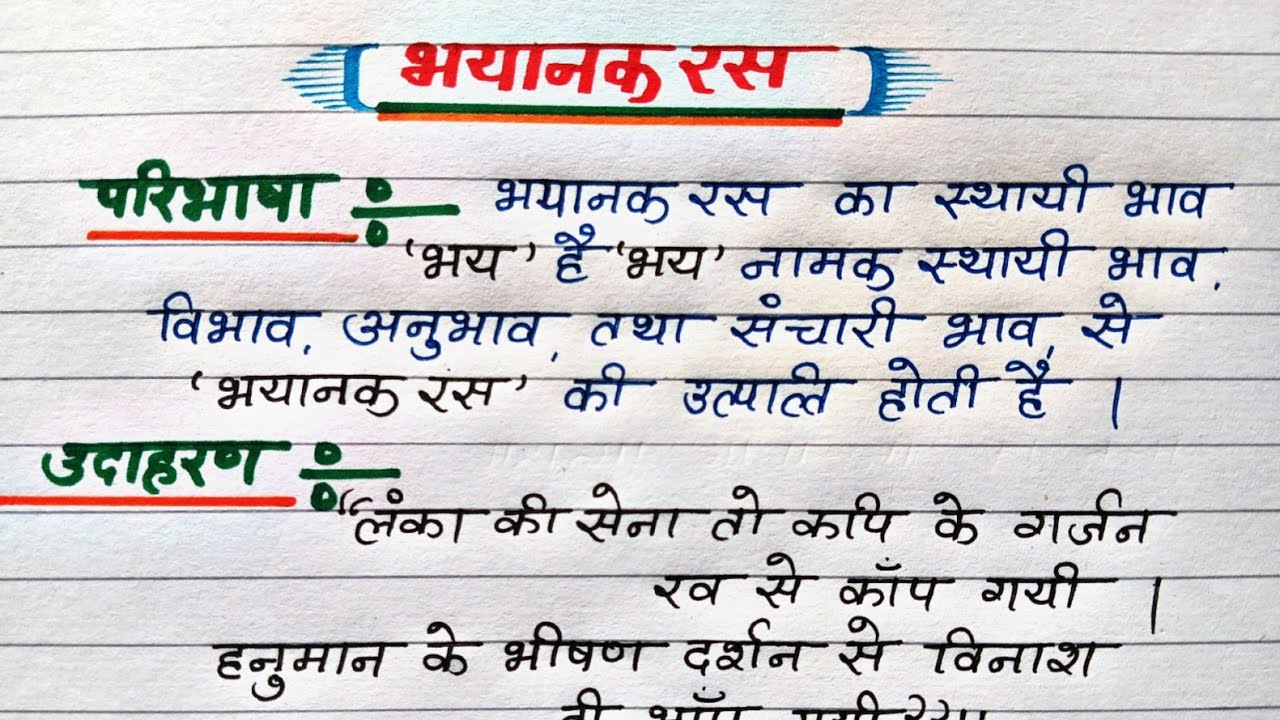 भयानक रस
परिभाषा ÷ भयानक रस का स्थायी भाव
'भय' है 'भय' नामक स्थायी भाव,
विभाव, अनुभाव, तथा संचारी भाव, से
'भयानक रस' की उत्पत्ति होती है ।
उदाहरण ÷
"लंका की सेना तो कपि के गर्जन
रव से काँप गयी ।
हनुमान के भीषण दर्शन से विनाश
ही भाँप गयी ।।"